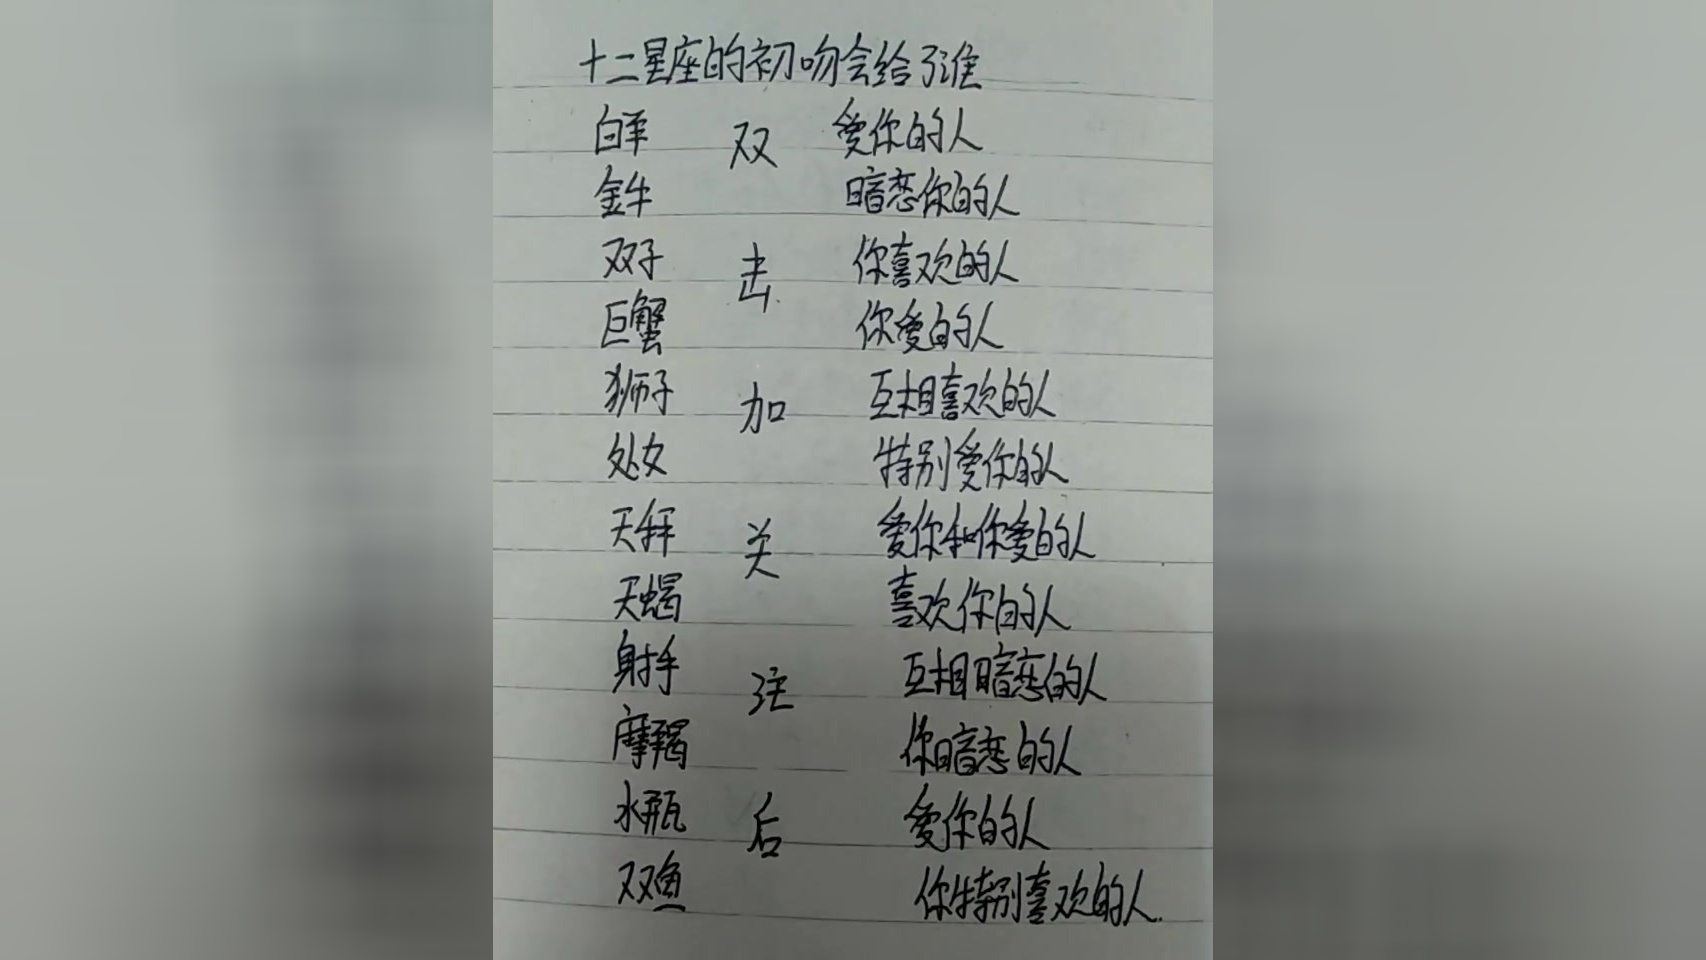 十二星座的初吻会给谁
白羊 双 爱你的人
金牛 暗恋你的人
双子 击 你喜欢的人
巨蟹 你爱的人
狮子 加 互相喜欢的人
处女 特别爱你的人
天秤 关 爱你和你爱的人
天蝎 喜欢你的人
射手 注 互相暗恋的人
摩羯 你暗恋的人
水瓶 后 爱你的人
双鱼 你特别喜欢的人.